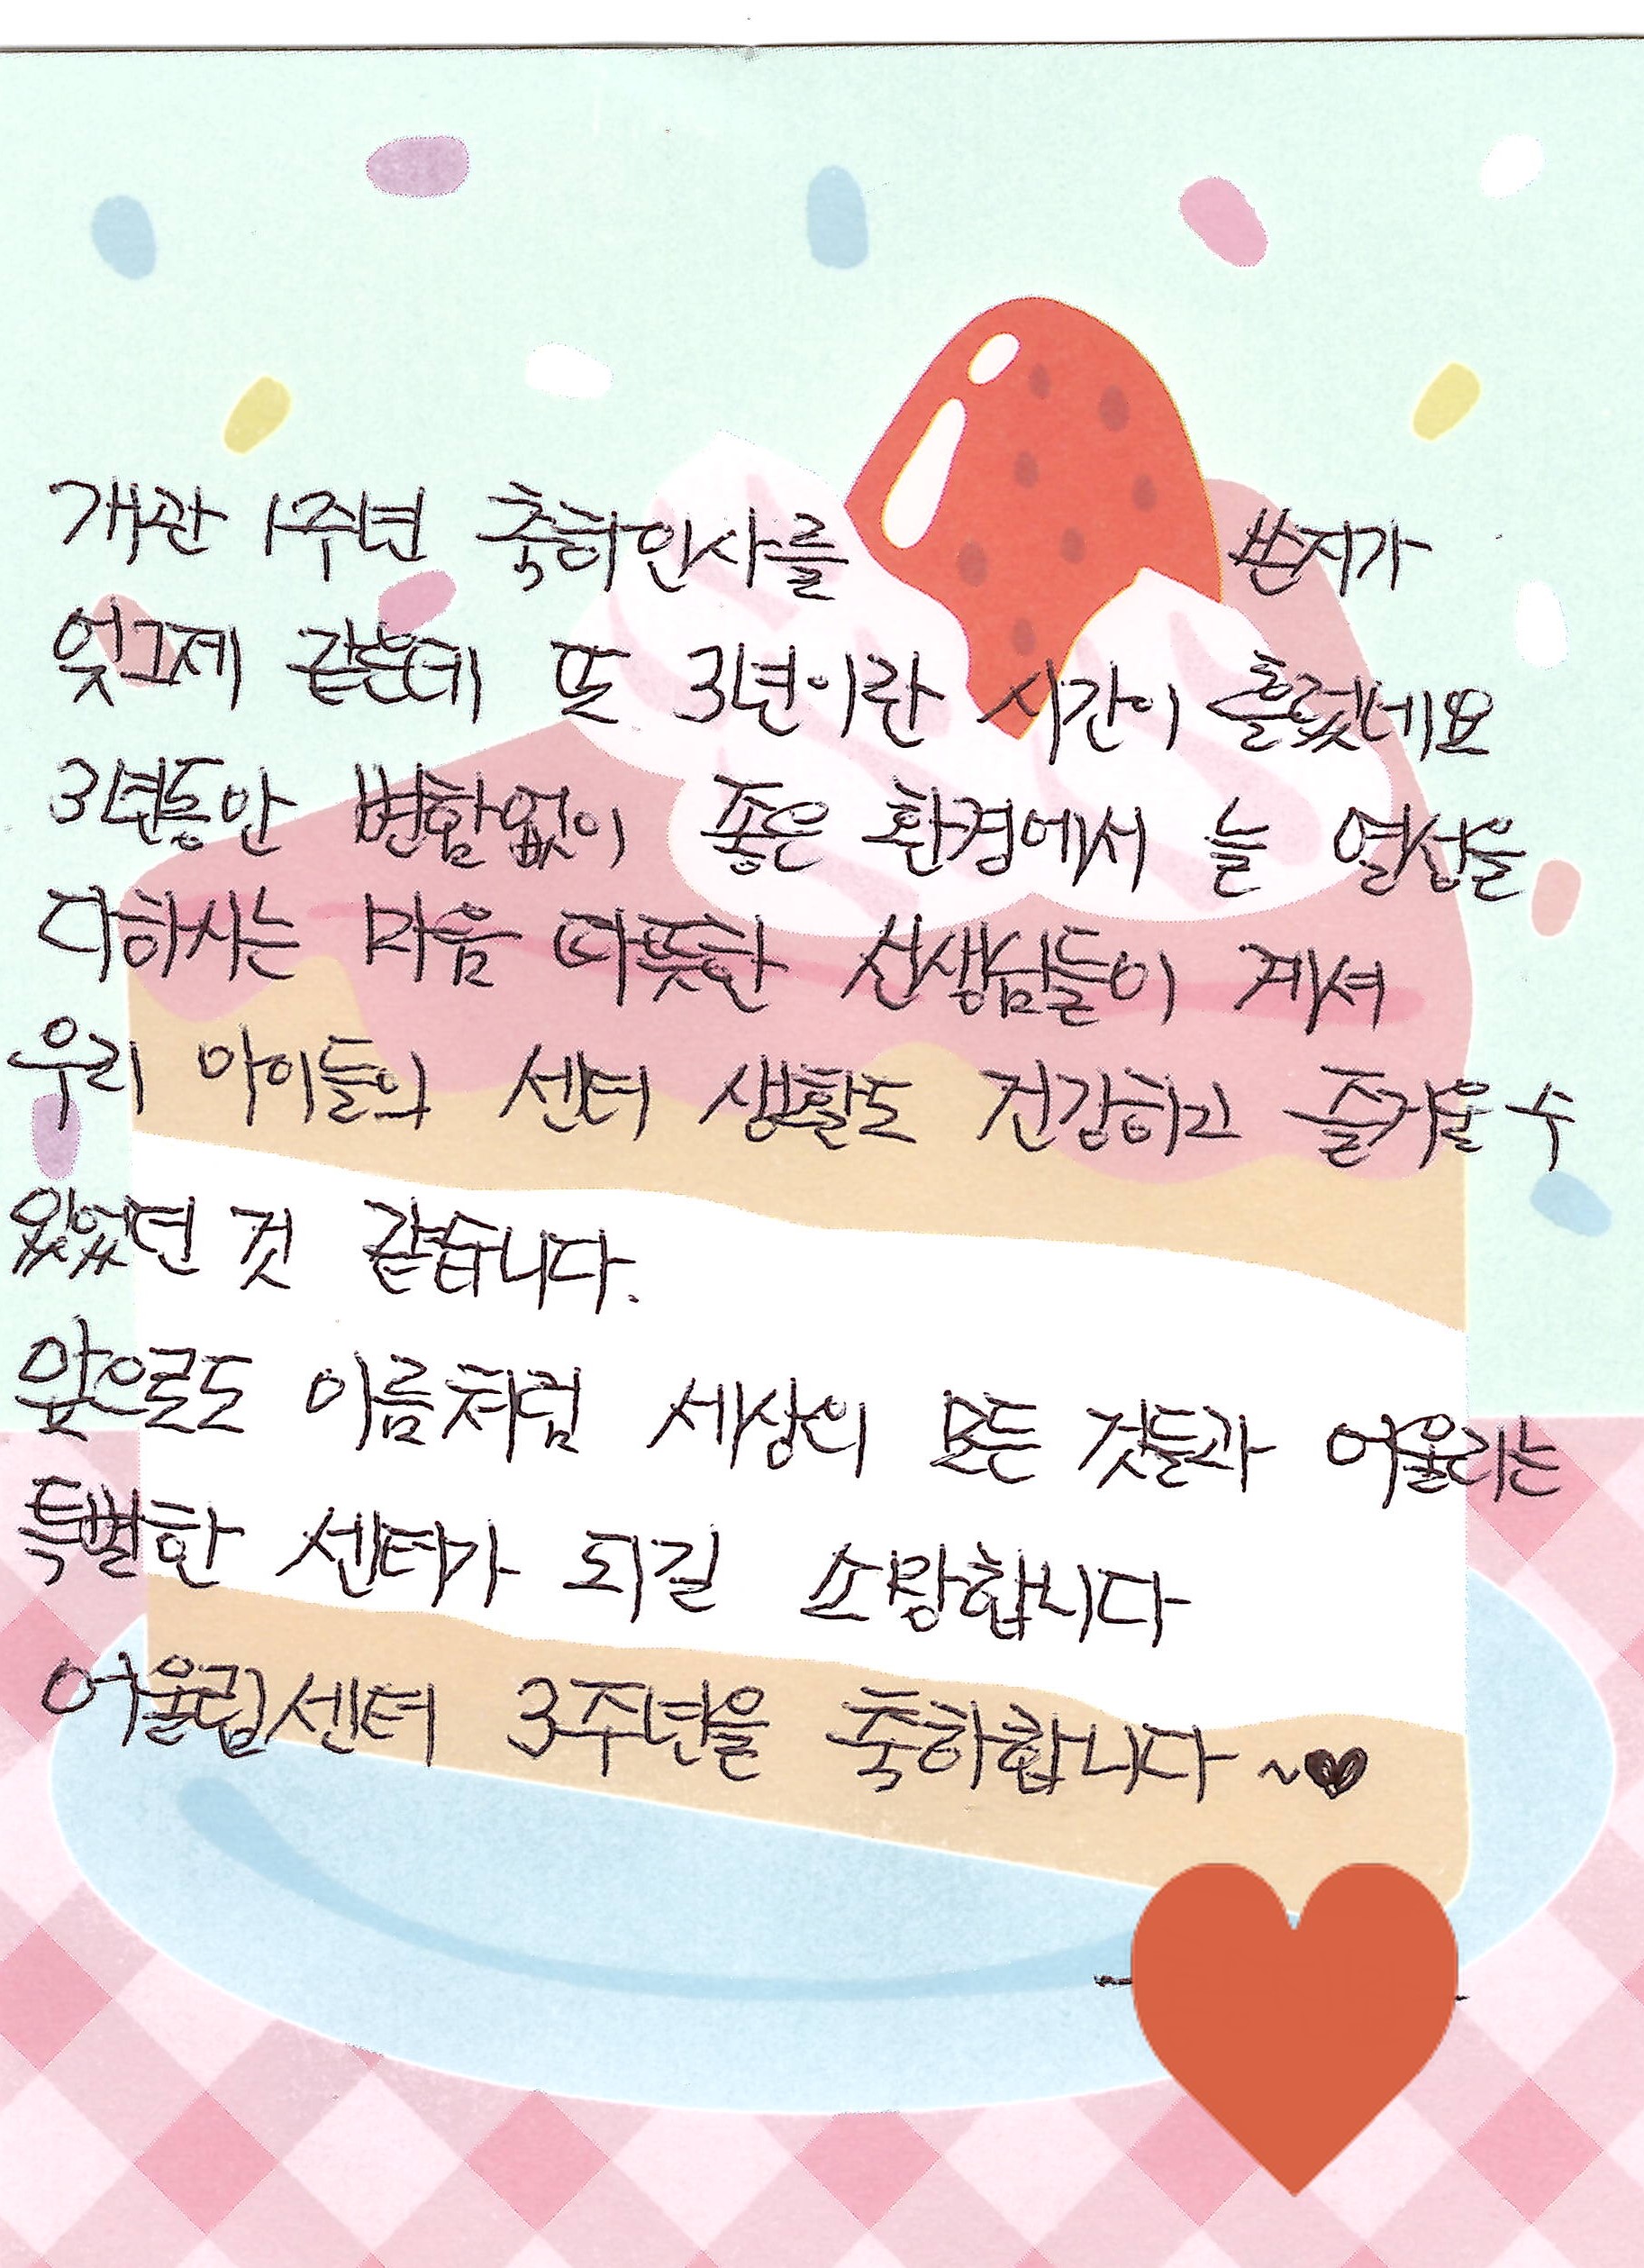 개관 1주년 축하인사를 쓴지가
엊그제 같은데 또 3년이란 시간이 흘렀네요
3년동안 변함없이 좋은 환경에서 늘 열성을
다하시는 마음 따뜻한 선생님들이 계셔
우리 아이들의 센터 생활도 건강하고 즐거울 수
있었던 것 같습니다.
앞으로도 이름처럼 세상의 모든 것들과 어울리는
특별한 센터가 되길 소망합니다
어울림센터 3주년을 축하합니다~♥